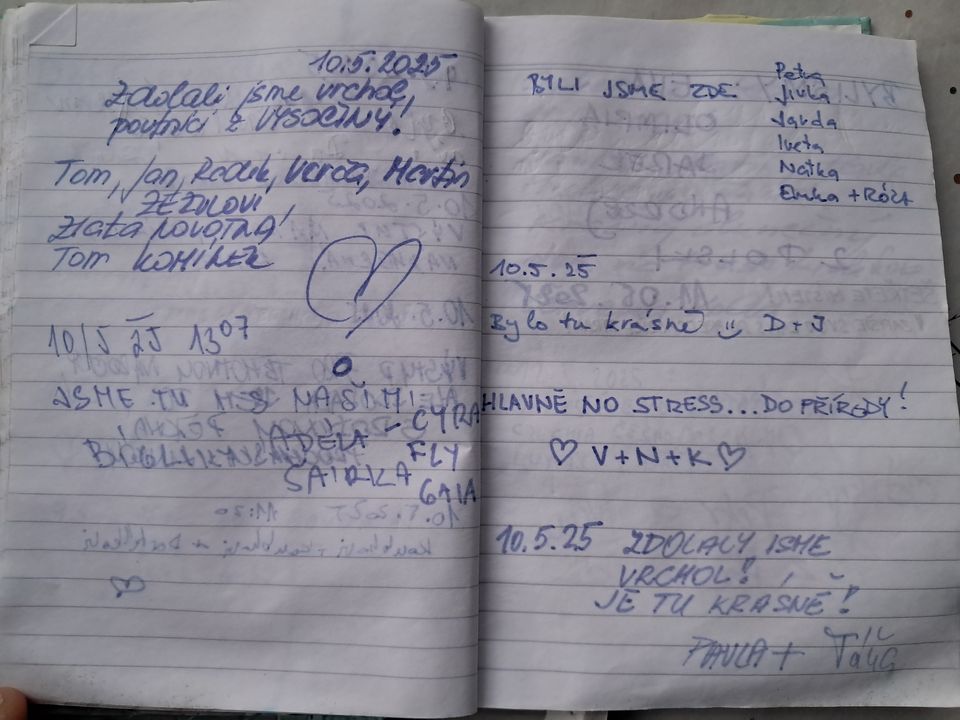 10.5.2025
Zdolali jsme vrchol,
poutníci z VYSOČINY!
Tom, Jan, Radek, Verča, Martin
ZEZULOVI
Zlata NOVOTNÁ!
Tom KOMÍNEK
10/5 25 13 07
JSME TU S NAŠIMI
ADÉLA - CYRA
FLY
ŠÁRKA GAIA
BYLI JSME ZDE:
Petra
Jivka
Jarda
Iveta
Naťka
Emka + Róza
10.5.25
Bylo tu krásně D + J
HLAVNĚ NO STRESS... DO PŘÍRODY!
♡ V+N+K ♡
10.5.25 ZDOLALY JSME
VRCHOL!
JE TU KRÁSNĚ!
PAVLA + Táňa